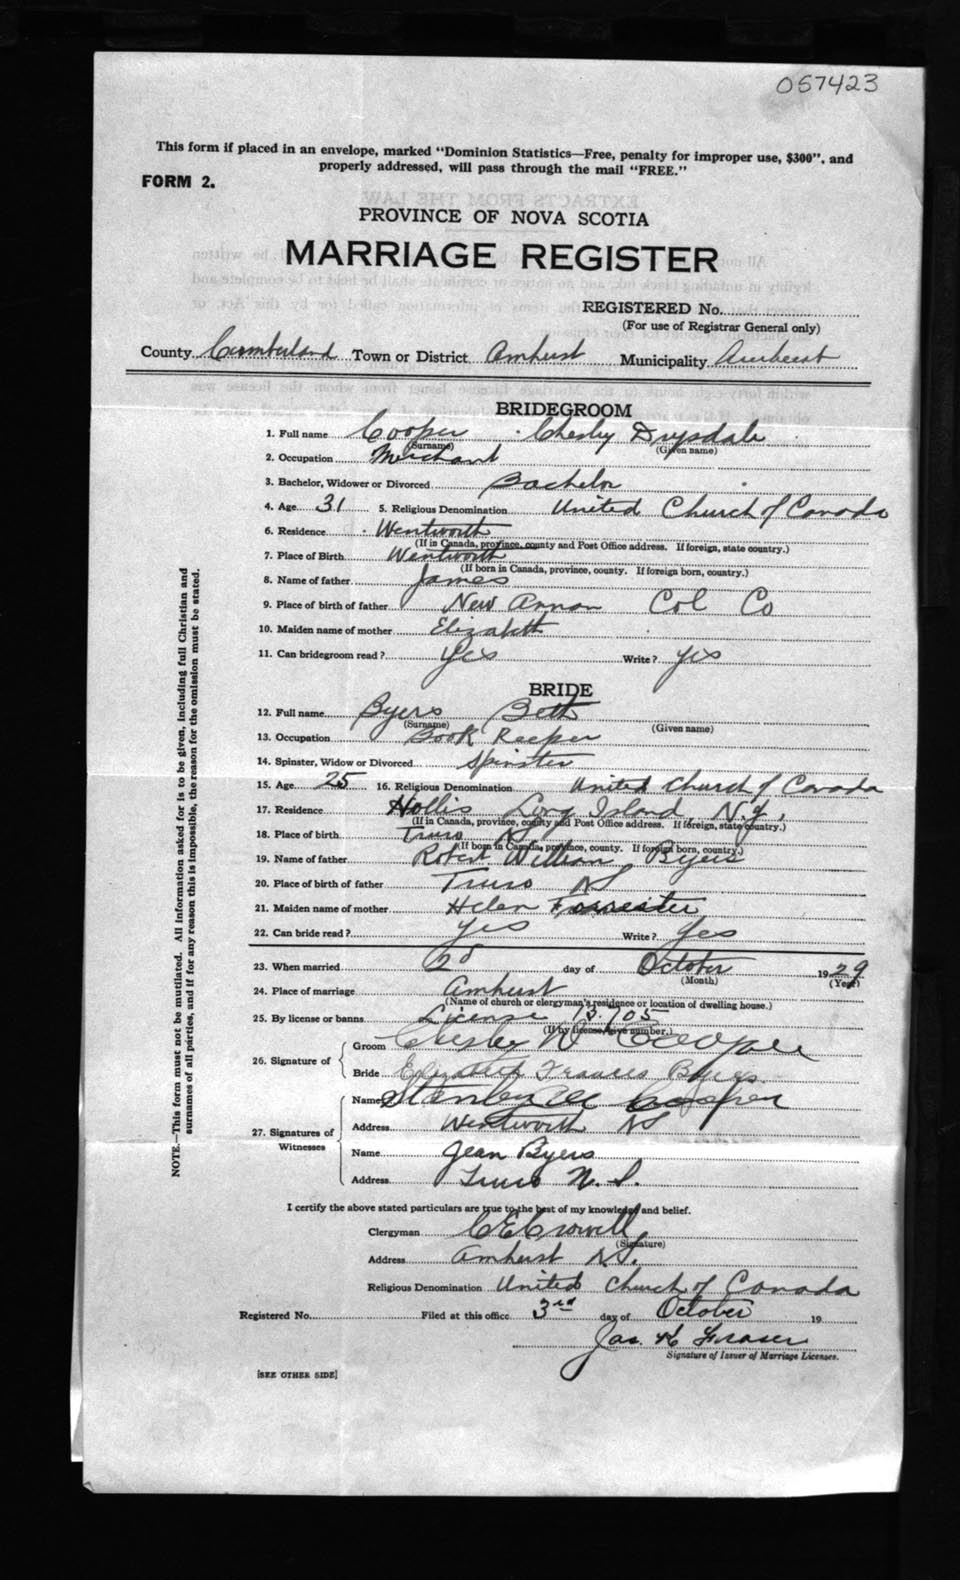 057423
This form if placed in an envelope, marked "Dominion Statistics—Free, penalty for improper use, $300", and
properly addressed, will pass through the mail "FREE."
FORM 2.
PROVINCE OF NOVA SCOTIA
MARRIAGE REGISTER
REGISTERED No.
(For use of Registrar General only)
County Cumberland Town or District Amherst Municipality Amherst
BRIDEGROOM
1. Full name Cooper Chesley Drysdale
(Surname) (Given name)
2. Occupation Merchant
3. Bachelor, Widower or Divorced Bachelor
4. Age 31 5. Religious Denomination United Church of Canada
6. Residence Wentworth
(If in Canada, province, county and Post Office address. If foreign, state country.)
7. Place of Birth Wentworth
(If born in Canada, province, county. If foreign born, country.)
8. Name of father James
9. Place of birth of father New Annan Col Co
10. Maiden name of mother Elizabeth
11. Can bridegroom read? Yes Write? Yes
BRIDE
12. Full name Byers Beth
(Surname) (Given name)
13. Occupation Book Keeper
14. Spinster, Widow or Divorced Spinster
15. Age 25 16. Religious Denomination United Church of Canada
17. Residence Hollis Long Island N.Y.
(If in Canada, province, county and Post Office address. If foreign, state country.)
18. Place of birth Truro NS
(If born in Canada, province, county. If foreign born, country.)
19. Name of father Robert William Byers
20. Place of birth of father Truro NS
21. Maiden name of mother Helen Forrester
22. Can bride read? Yes Write? Yes
23. When married 2d day of October 1929
(Month) (Year)
24. Place of marriage Amherst
(Name of church or clergyman's residence or location of dwelling house.)
25. By license or banns License 15705
(If by license give number.)
26. Signature of Groom Chesley Cooper
Bride Elizabeth Frances Byers
27. Signatures of Witnesses
Name Stanley Cooper
Address Wentworth NS
Name Jean Byers
Address Truro N.S.
I certify the above stated particulars are true to the best of my knowledge and belief.
Clergyman C E Crowell
(Signature)
Address Amherst N.S.
Religious Denomination United Church of Canada
Registered No. Filed at this office 3rd day of October 19
Jas. Fraser
Signature of Issuer of Marriage Licenses.
[SEE OTHER SIDE]
NOTE.—This form must not be mutilated. All information asked for is to be given, including full Christian and
surnames of all parties, and if for any reason this is impossible, the reason for the omission must be stated.